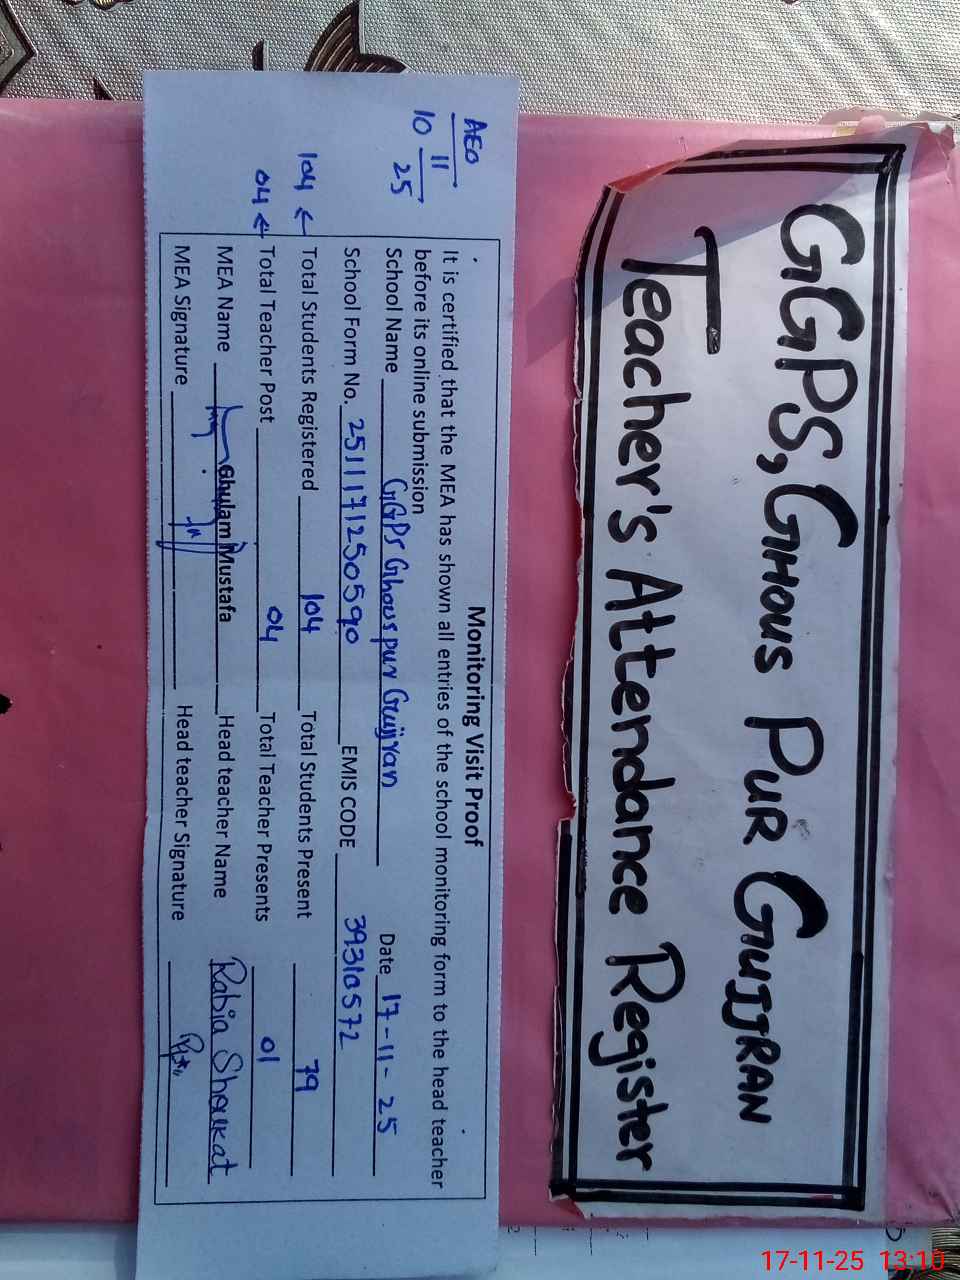 GGPS, GHOUS PUR GUJJRAN
Teacher's Attendance Register
AEO
10 11 25
Monitoring Visit Proof
It is certified that the MEA has shown all entries of the school monitoring form to the head teacher
before its online submission
School Name GGPS Ghous pur Gujjran Date 17-11-25
School Form No. 2511171250590 EMIS CODE 39310572
104 ← Total Students Registered 104 Total Students Present 79
04 ← Total Teacher Post 04 Total Teacher Presents 01
MEA Name Ghulam Mustafa Head teacher Name Rabia Shoukat
MEA Signature Head teacher Signature
17-11-25 13:10